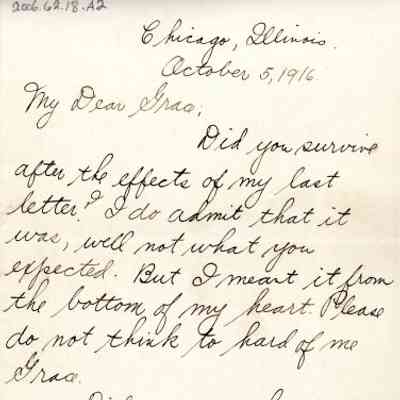 2006.62.18.A2
Chicago, Illinois.
October 5, 1916.
My Dear Grace;
Did you survive
after the effects of my last
letter? I do admit that it
was, well not what you
expected. But I meant it from
the bottom of my heart. Please
do not think to hard of me
Grace.
Did